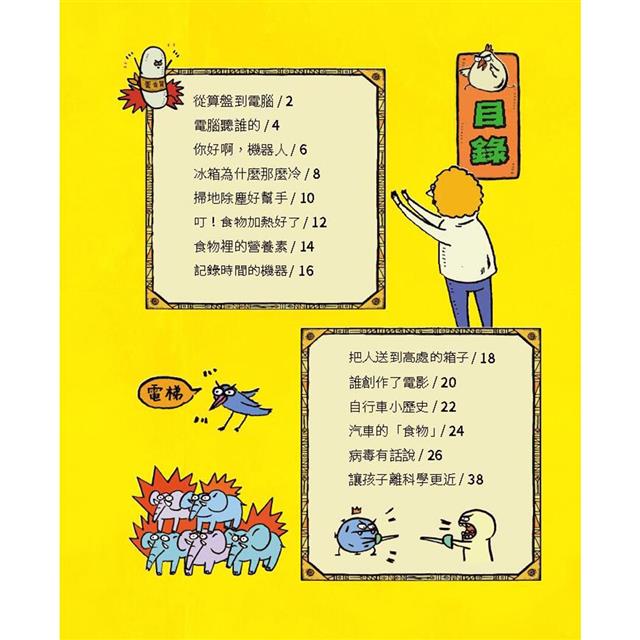 目錄
從算盤到電腦 / 2
電腦聽誰的 / 4
你好啊，機器人 / 6
冰箱為什麼那麼冷 / 8
掃地除塵好幫手 / 10
叮！食物加熱好了 / 12
食物裡的營養素 / 14
記錄時間的機器 / 16
把人送到高處的箱子 / 18
誰創作了電影 / 20
自行車小歷史 / 22
汽車的「食物」 / 24
病毒有話說 / 26
讓孩子離科學更近 / 38
電梯